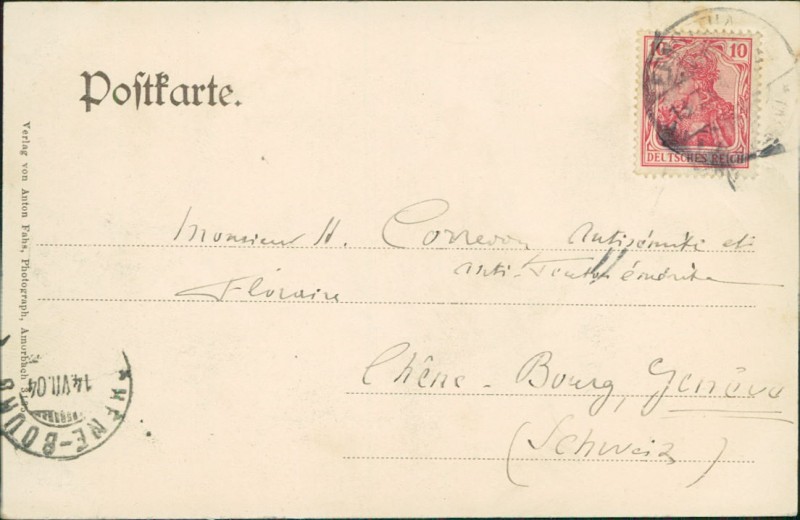 Postkarte.
10 10
DEUTSCHES REICH
Verlag von Anton Fahs, Photograph, Amorbach
Monsieur H. Correvon Antisémite et
anti-
Floraire
Chêne-Bourg, Genève
(Schweiz)
CHÊNE-BOURG
14.VII.04